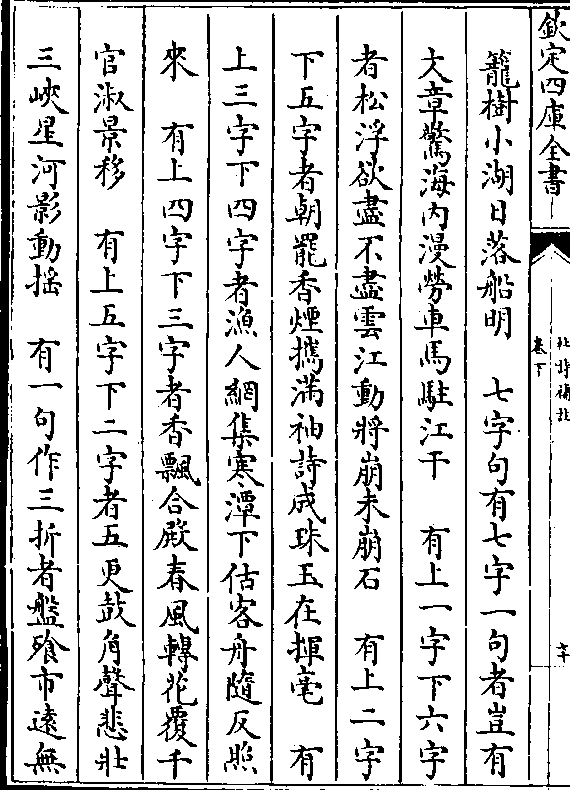 欽定四庫全書
卷下
籠樹小湖日落船明　七字句有七字一句者豈有
文章驚海内漫勞車馬駐江干　有上一字下六字
者松浮欲盡不盡雲江動將崩未崩石　有上二字
下五字者朝罷香煙攜滿袖詩成珠玉在揮毫　有
上三字下四字者漁人網集寒潭下估客舟隨反照
來　有上四字下三字者香飄合殿春風轉花覆千
官淑景移　有上五字下二字者五更鼓角聲悲壯
三峽星河影動搖　有一句作三折者盤飱市遠無